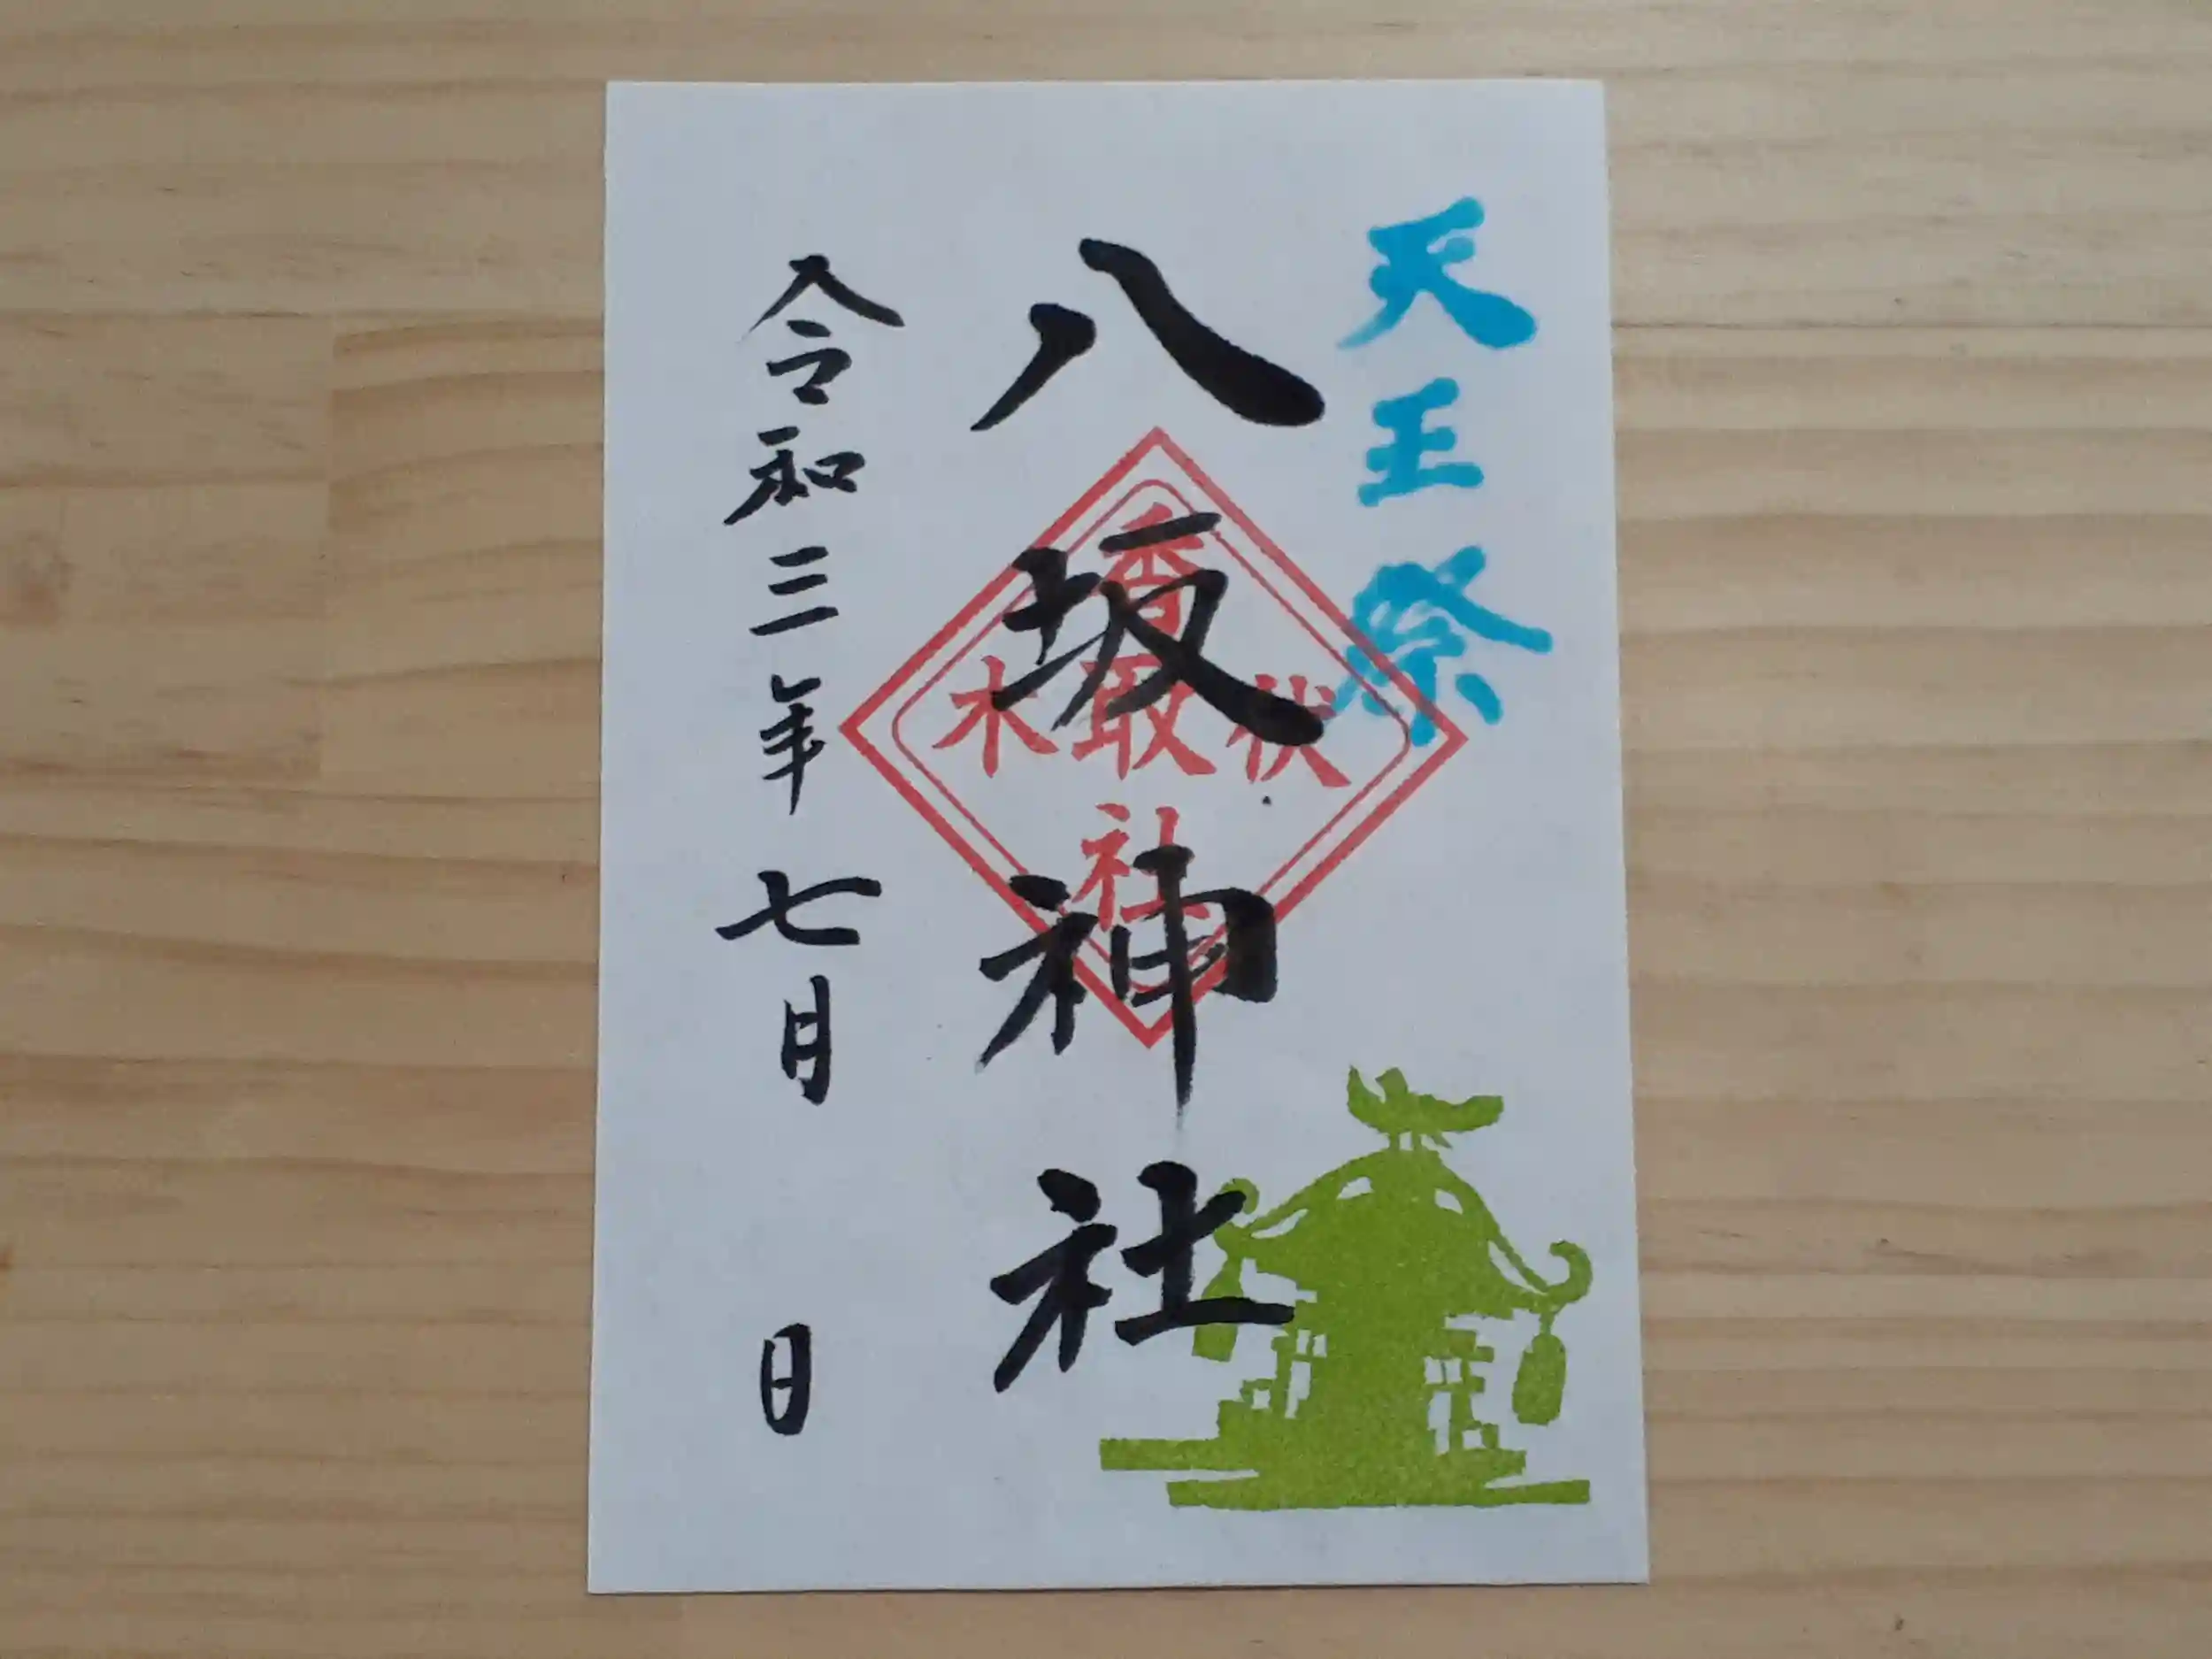 天王祭
八坂神社
伏木
香取社
令和三年七月 日